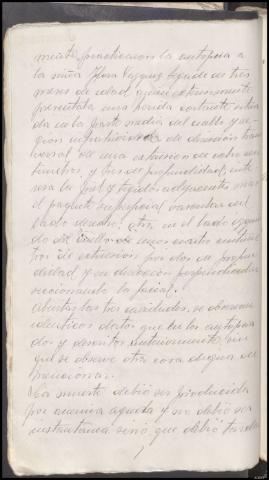 mente practicaron la autopsia a
la niña Flora Vazquez Aguedo de tres
meses de edad, quien exteriormente
presentaba una herida cortante situa
da en la parte media del cuello y re
gion de dirección trans
versal de una extension de ocho cen
timetros, y tres de profundidad, inte
resa la piel y tejidos adyacentes mas
el paquete superficial vascular del
lado derecho; otra en el lado izquier
do del cuello de unos cuatro centime
tros de extension por dos de profun
didad y su dirección perpendicular
seccionando la facial.
Abiertas las tres cavidades, se observaron
identicos datos que en los autopsia
dos y descritos anteriormente, sin
que se observe otra cosa digna de
mencionar.
La muerte debió ser producida
por anemia aguda y no debió ser
instantanea sinó que debió tardar